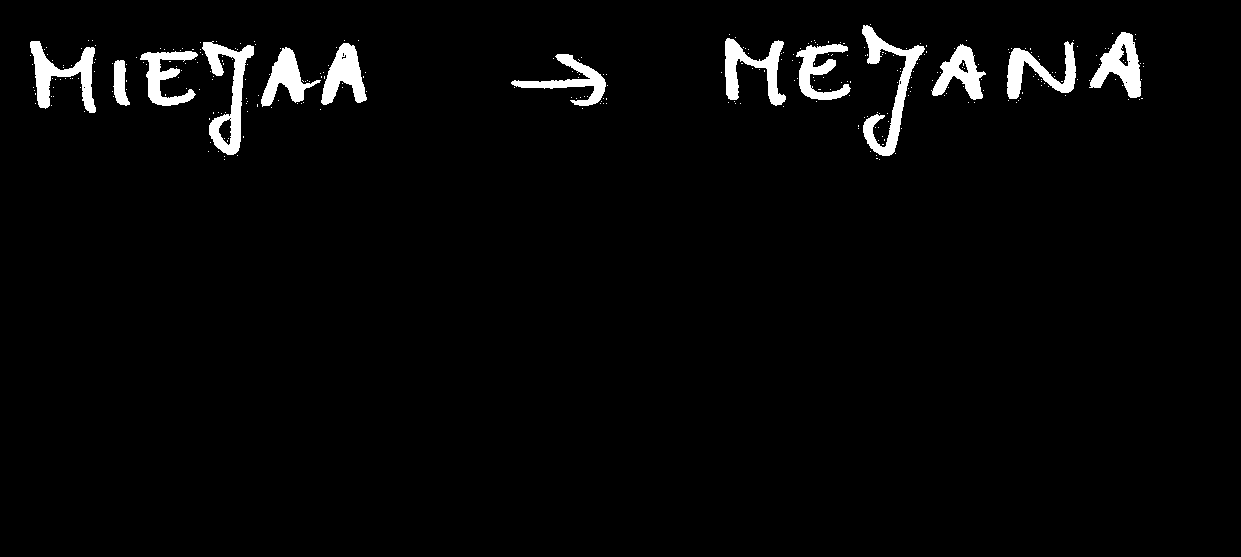 MIEJAA → MEJANA